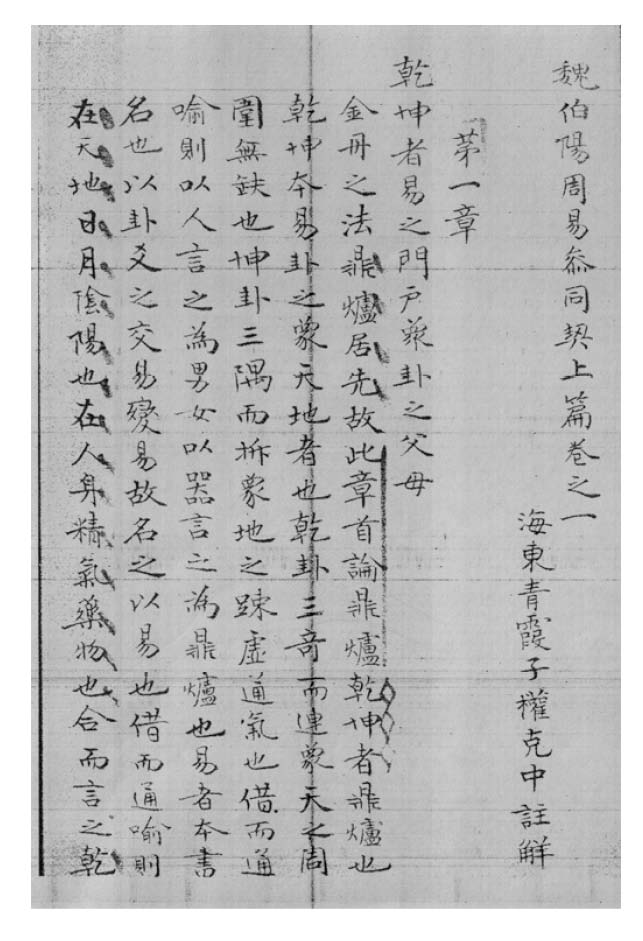 魏伯陽周易叅同契上篇卷之一
海東青霞子權克中註解
第一章
乾坤者易之門戶衆卦之父母
金丹之法鼎爐居先故此章首論鼎爐乾坤者鼎爐也
乾坤本易卦之象天地者也乾卦三奇而連象天之周
圍無缺也坤卦三隅而拆象地之踈虛通氣也借而通
喻則以人言之為男女以器言之為鼎爐也易者本書
名也以卦爻之交易變易故名之以易也借而通喻則
在天地日月陰陽也在人身精氣藥物也合而言之乾